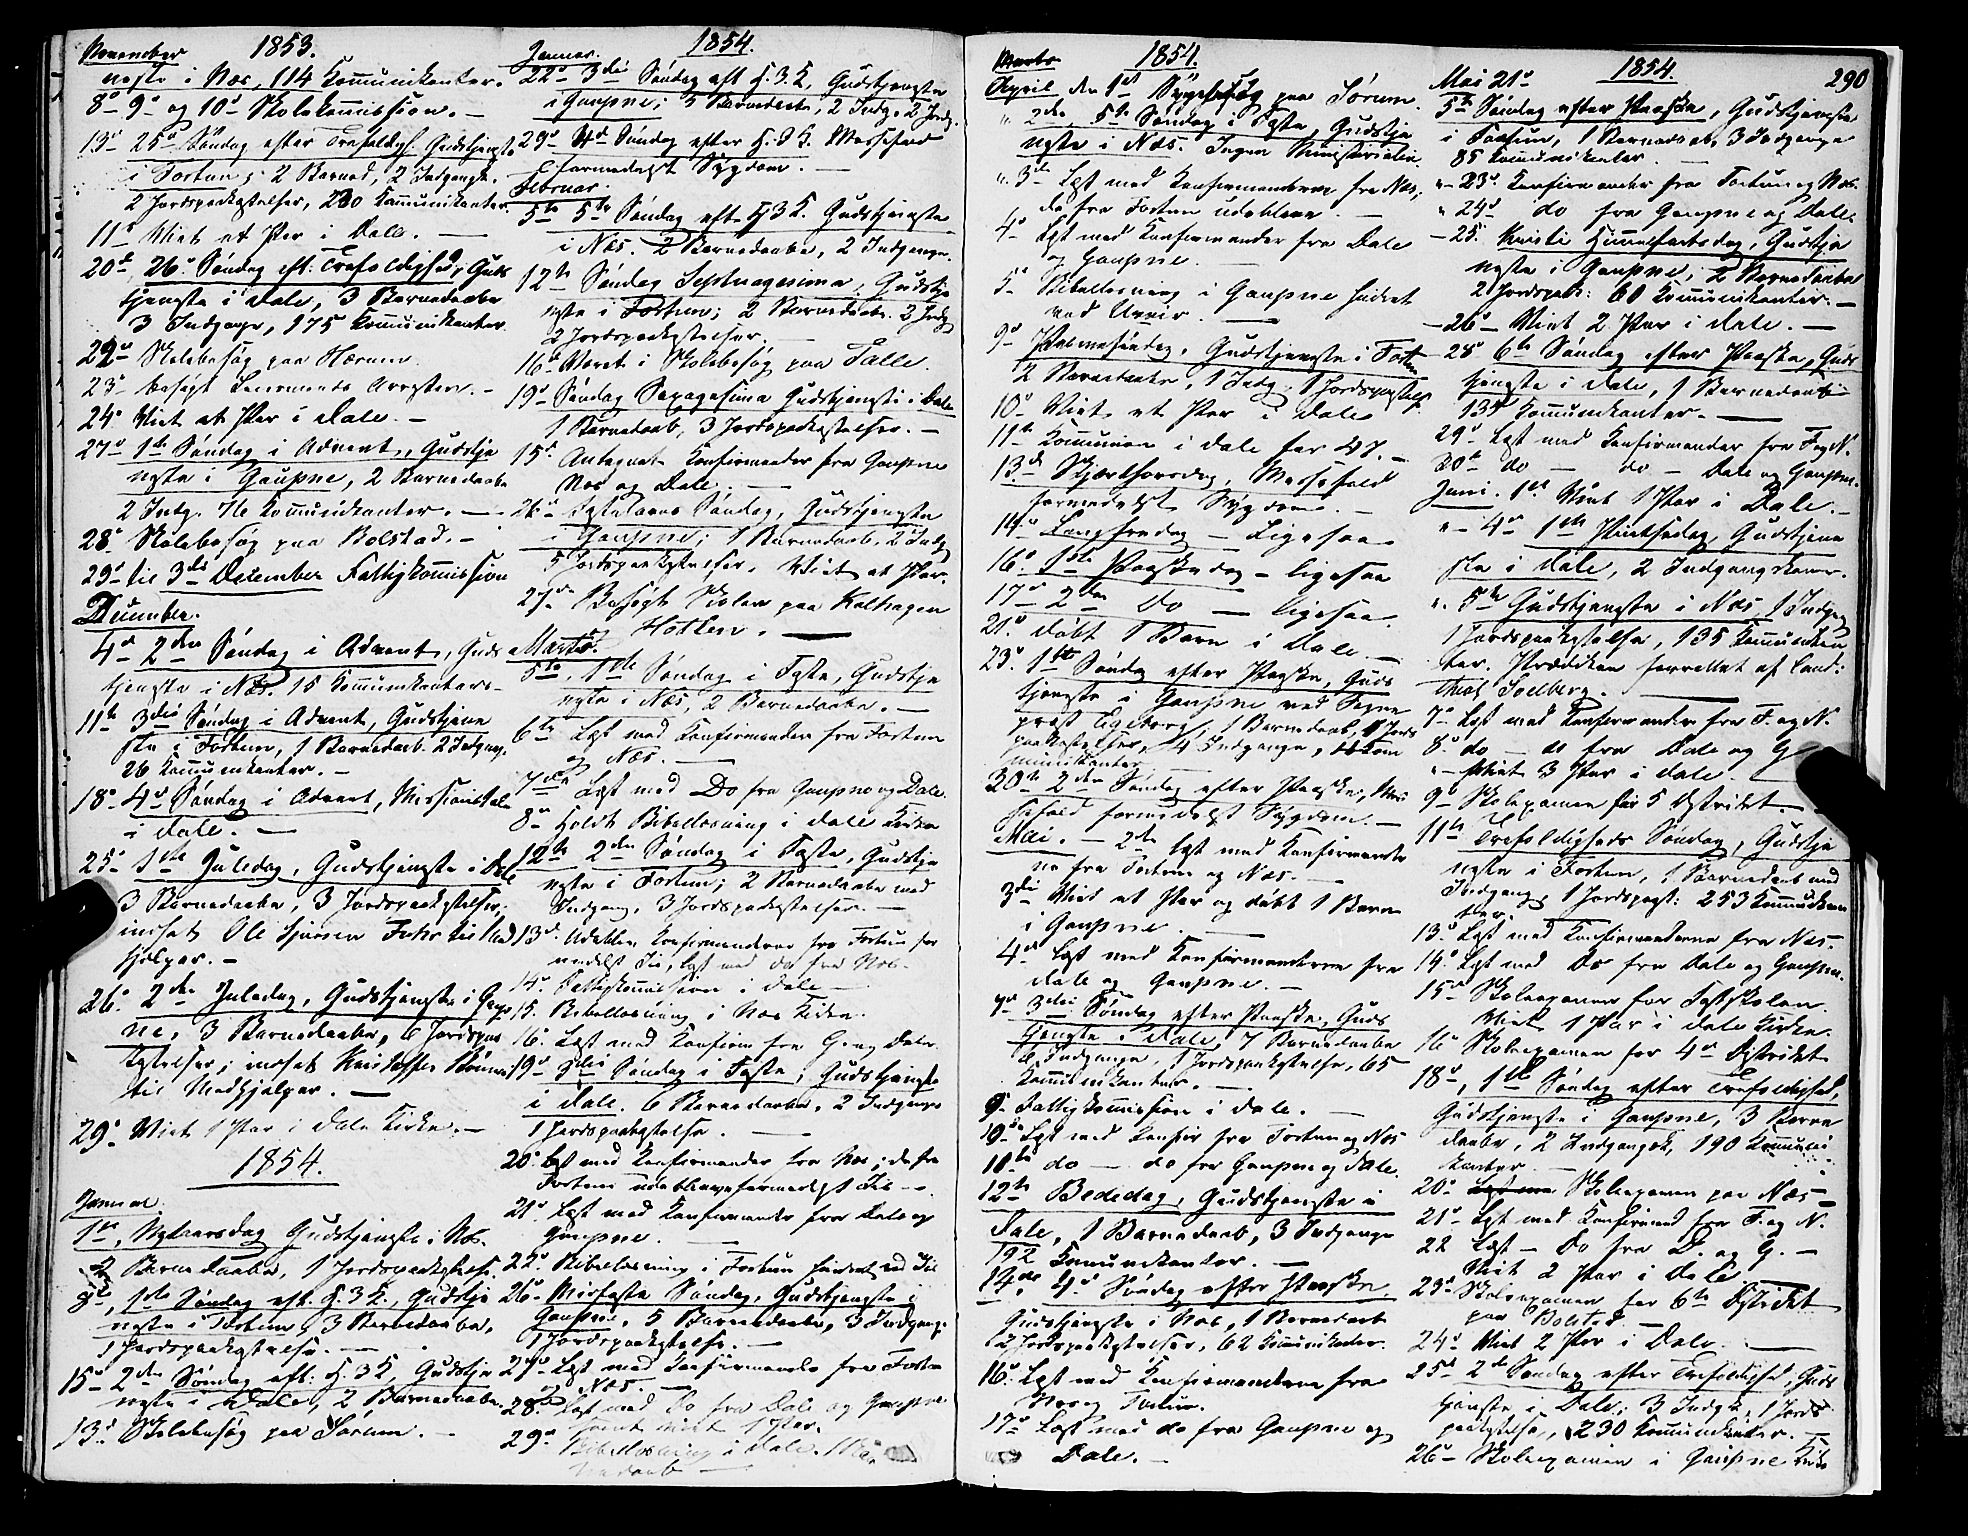 November 1853.
neste i Næs, 114 Kommunikanter.
8d 9d og 10d Skolekommission. —
13d 25d Søndag efter Trefoldigh. Gudstjenest
i Fortun; 2 Barned, 2 Indgangsk.
2 Jordspaakastelser, 220 Kommunikanter.
11d Viet et Par i Dale. —
20de 26d Søndag eft: Trefoldighed, Guds
tjeneste i Dale, 3 Barnedaabe
3 Indgange, 175 Kommunikanter
22d Skolebesøg paa Hærum.
23d besøgt Lensmands Arresten. —
24d Viet et Par i Dale. —
27d 1ste Søndag i Advent, Gudstje
neste i Gaupne, 2 Barnedaabe
2 Indg. 76 Kommunikanter. —
28d Skolebesøg paa Bolstad. —
29d til 3die December Fattigkommission
December.
4d 2den Søndag i Advent, Guds
tjeneste i Næs. 15 Kommunikanter —
11te 3die Søndag i Advent, Gudstjene
ste i Fortun, 1 Barnedaab. 2 Indgang.
26 Kommunikanter. —
18d 4d Søndag i Advent, Missionstale
i Dale. —
25d 1ste Juledag, Gudstjeneste i Dale
3 Barnedaabe, 3 Jordspaakastelser,
indsat Ole Fuhr til Med
hjelper. —
26d 2den Juledag, Gudstjeneste i Gaup
ne, 3 Barnedaabe, 6 Jordspaa
kastelser; indsat Kristoffer
til Medhjælper. —
29d Viet 1 Par i Dale Kirke. —
1854.
Januar.
1ste, Nytaarsdag Gudstjeneste i Næs.
2 Barnedaabe, 1 Jordspaakastelse.
8de, 1ste Søndag eft. H. 3 K., Gudstje
neste i Fortun, 3 Barnedaabe,
1 Jordspaakastelse. —
15d 2den Søndag eft: H. 3 K, Gudstje
neste i Dale, 2 Barnedaabe.
13d Skolebesøg paa Sørum. —
Januar. 1854.
22d 3die Søndag eft H. 3 K, Gudstjeneste
i Gaupne; 3 Barnedaab, 2 Indg. 2 Jords.
29d 4d Søndag efter H. 3 K. Messefald
formedelst Sygdom. —
Februar.
5te 5te Søndag eft H 3 K. Gudstjeneste
i Næs. 2 Barnedaabe, 2 Indgange.
12te Søndag Septuagesima, Gudstje
neste i Fortun; 2 Barnedaabe. 2 Indg
2 Jordspaakastelser. —
16d Været i Skolebesøg paa Talle.
19d Søndag Sexagesima Gudstjeneste i Dale
1 Barnedaab, 3 Jordspaakastelser. —
15d Antegnet Konfirmander fra Gaupne
Næs og Dale. —
26d Fastelavns Søndag, Gudstjeneste
i Gaupne; 1 Barnedaab, 2 Indg
5 Jordspaakastelser. Viet et Par.
27d Besøgt Skolen paa Kalhagen
Marts.
5te, 1ste Søndag i Faste, Gudstje
neste i Næs, 2 Barnedaabe. —
6te Læst med Konfirmander fra Fortun
og Næs. —
7de Læst med Do fra Gaupne og Dale.
8d Holdt Bibellæsning i Dale Kirke
12te 2den Søndag i Faste, Gudstje
neste i Fortun; 2 Barnedaabe med
Indgang, 3 Jordspaakastelser. —
13d Udebleve Konfirmanderne fra Fortun for
medelst Iis, læst med do fra Næs.
14d Fattigkommission i Dale —
15. Bibellæsning i Næs Kirke.
16. Læst med Konfirm fra G. og Dale.
19d 3die Søndag i Faste, Gudstjeneste
i Dale. 6 Barnedaabe, 2 Indgange
1 Jordspaakastelse. —
20d Læst med Konfirmander fra Næs; de fra
Fortun udebleve formedelst Iis —
21d Læst med Konfirmander fra Dale og
Gaupne. —
22. Bibellæsning i Fortun hindret ved Iis
26d Midfaste Søndag, Gudstjeneste i
Gaupne, 5 Barnedaabe, 3 Indgange
1 Jordspaakastelse. —
27d Læst med Konfirmander fra Fortun
og Næs. —
28d Læst med Do fra Dale og Gaupne.
samt viet 1 Par.
29d Bibellæsning i Dale.
Marts 1854.
April den 1st Sygebesøg paa Sørum.
" 2den, 5te Søndag i Faste, Gudstje
neste i Næs. Ingen Ministerialia.
" 3die Læst med Konfirmanderne fra Næs,
de fra Fortun udebleve. —
4d Læst med Konfirmander fra Dale
og Gaupne. —
5d Bibellæsning i Gaupne hindret
ved Uveir. —
9d Palmesøndag, Gudstjeneste i Fortun
2 Barnedaabe, 1 Indg. 1 Jordspaakastels
10d Viet et Par i Dale
11te Kommunion i Dale for 47. —
13d Skjærthorsdag, Messefald
formedelst Sygdom. —
14d Langfredag — Ligesaa
16d 1ste Paaskedag — ligesaa
17d 2den do — ligesaa.
21d døbt 1 Barn i Dale. —
23d 1ste Søndag efter Paaske, Guds
tjeneste i Gaupne ved Sogne
præst , 1 Barnedaab, 1 Jords
paakastelser, 4 Indgange, Kom
munikanter —
30te 2den Søndag efter Paaske, Mes
sefald formedelst Sygdom. —
Mai. — 2den læst med Konfirmander
ne fra Fortun og Næs. —
3die Viet et Par og døbt 1 Barn
i Gaupne. —
4d Læst med Konfirmanderne fra
Dale og Gaupne. —
7d 3die Søndag efter Paaske, Guds
tjeneste i Dale, 7 Barnedaabe
6 Indgange, 1 Jordspaakastelse, 65
Kommunikanter. —
9d Fattigkommission i Dale. —
10d Læst med Konfir fra Fortun og Næs
11te do — do fra Gaupne og Dale.
12te Bededag, Gudstjeneste i
Dale, 1 Barnedaab, 3 Indgange
192 Kommunikanter. —
14de, 4d Søndag efter Paaske,
Gudstjeneste i Næs, 1 Barnedaab
2 Jordspaakastelser, 62 Kommunikanter.
16d Læst med Konfirmanderne fra
Næs og Fortun.
17d Læst med do fra Gaupne og
Dale. —
Mai 21d 1854. 290
5te Søndag efter Paaske, Gudstjeneste
i Fortun, 1 Barnedaab, 3 Indgange
85 Kommunikanter. —
" 23d Konfirmander fra Fortun og Næs
" 24d do fra Gaupne og Dale.
— 25. Kristi Himmelfartsdag, Gudstje
neste i Gaupne; 2 Barnedaabe
2 Jordspaak: 60 Kommunikanter. —
— 26d Viet 2 Par i Dale. —
28 6te Søndag efter Paaske, Guds
tjeneste i Dale, 1 Barnedaab
134 Kommunikanter. —
29d Læst med Konfirmander fra F. og N.
30te do — do — Dale og Gaupne.
Juni. 1st Viet 1 Par i Dale. —
" 4d 1ste Pintsedag, Gudstjene
ste i Dale, 2 Indgangskoner.
" 5te Gudstjeneste i Næs, 1 Indgang
1 Jordspaakastelse, 135 Kommunikan
ter. Prædiken forrettet af Cand:
theol Soelberg. —
7d Læst med Konfirmander fra F. og N.
8d do — do fra Dale og G
" — Viet 3 Par i Dale.
9d Skolexamen for 5 Distrikt. —
11te Trefoldigheds Søndag, Gudstje
neste i Fortun, 1 Barnedaab med
Indgang, 1 Jordspagt: 253 Kommunikan
ter.
13d Læst med Konfirmanderne fra Næs.
14d Læst med Do fra Dale og Gaupne.
15d Skoleexamen for Fastskolen
Viet 1 Par i Dale Kirke.
16d Skolexamen for 4d Distrikt
18d, 1ste Søndag efter Trefoldighed,
Gudstjeneste i Gaupne, 3 Barne
daabe, 2 Indgangsk, 190 Kommuni
kanter. —
20d Skolexamen paa Næs —
21d Læst med Konfirmand fra F. og N.
22 Læst — Do fra D. og G. —
Viet 2 Par i Dale
23d Skolexamen for 6te Distrikt
paa Bolstad —
24d Viet 2 Par i Dale. —
25d 2d Søndag efter Trefoldighed, Guds
tjeneste i Dale; 3 Indgk, 1 Jords
paakastelse, 230 Kommunikanter. —
26d Skolexamen i Gaupne